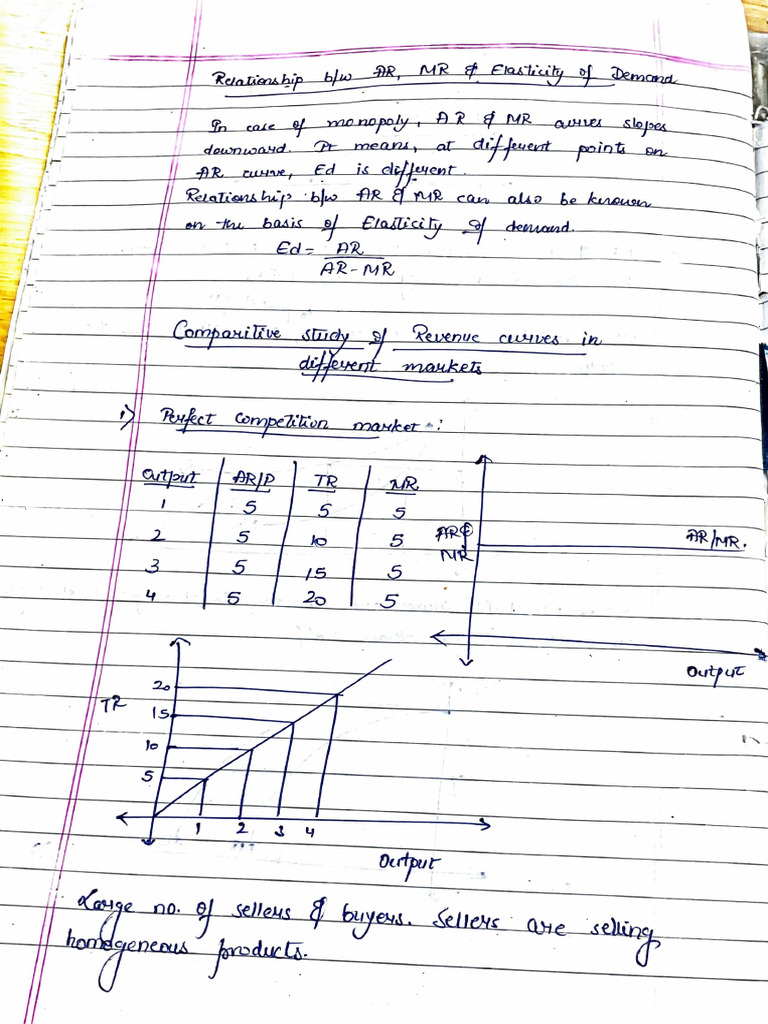 Relationship b/w AR, MR & Elasticity of Demand
In case of monopoly, AR & MR curves slopes
downward. It means, at different points on
AR curve, Ed is different.
Relationship b/w AR & MR can also be known
on the basis of Elasticity of demand.
Ed = AR
AR-MR
Comparitive study of Revenue curves in
different markets
i) Perfect Competition market :
Output AR/P TR MR
1 5 5 5
2 5 10 5
3 5 15 5
4 5 20 5
AR &
MR
AR/MR.
Output
TR
20
15
10
5
1 2 3 4
Output
Large no. of sellers & buyers. Sellers are selling
homogeneous products.